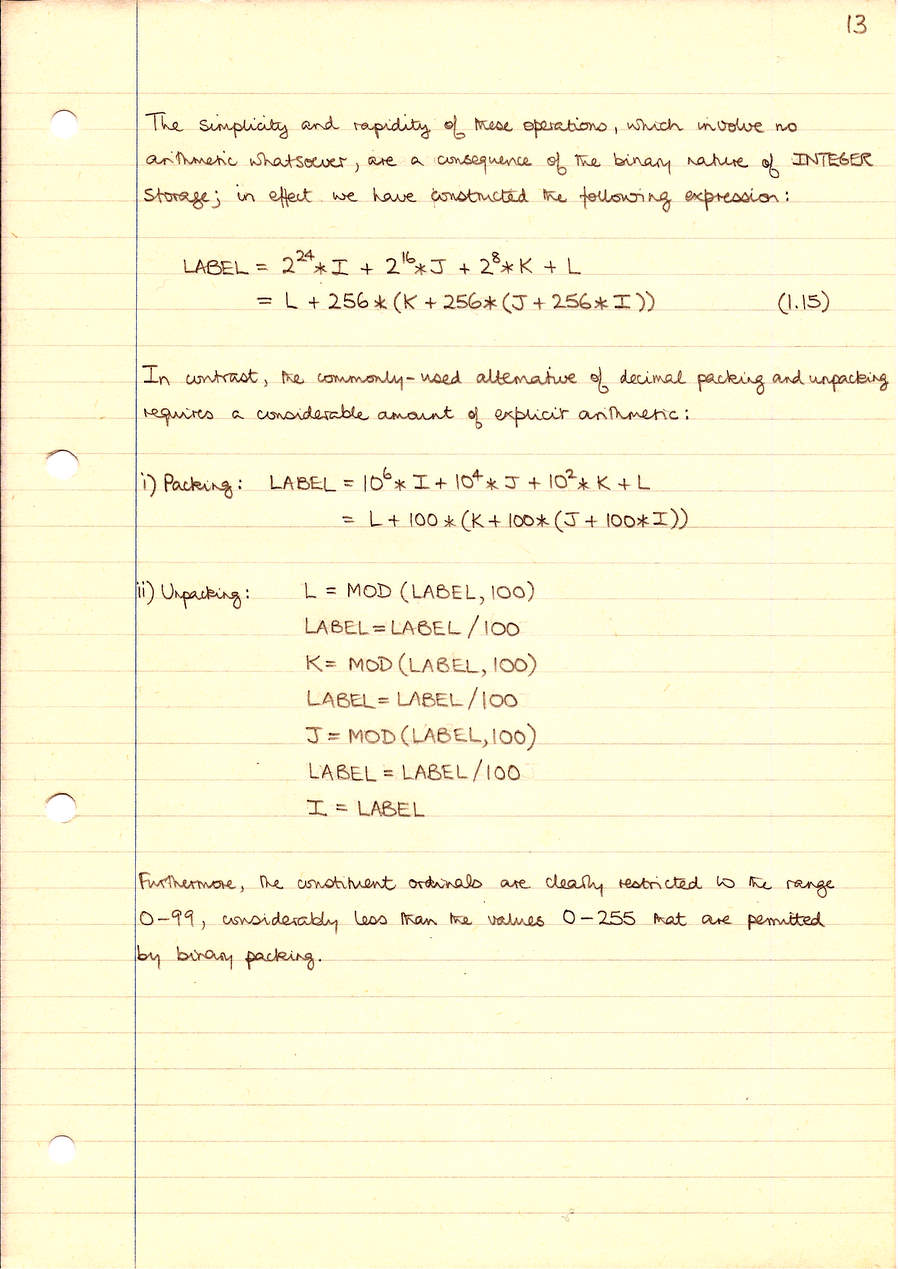 13
The simplicity and rapidity of these operations, which involve no
arithmetic whatsoever, are a consequence of the binary nature of INTEGER
storage; in effect we have constructed the following expression:
LABEL = 2²⁴*I + 2¹⁶*J + 2⁸*K + L
= L + 256*(K + 256*(J + 256*I)) (1.15)
In contrast, the commonly-used alternative of decimal packing and unpacking
requires a considerable amount of explicit arithmetic:
i) Packing: LABEL = 10⁶*I + 10⁴*J + 10²*K + L
= L + 100*(K + 100*(J + 100*I))
ii) Unpacking: L = MOD (LABEL, 100)
LABEL = LABEL/100
K = MOD (LABEL, 100)
LABEL = LABEL/100
J = MOD (LABEL, 100)
LABEL = LABEL/100
I = LABEL
Furthermore, the constituent ordinals are clearly restricted to the range
0-99, considerably less than the values 0-255 that are permitted
by binary packing.